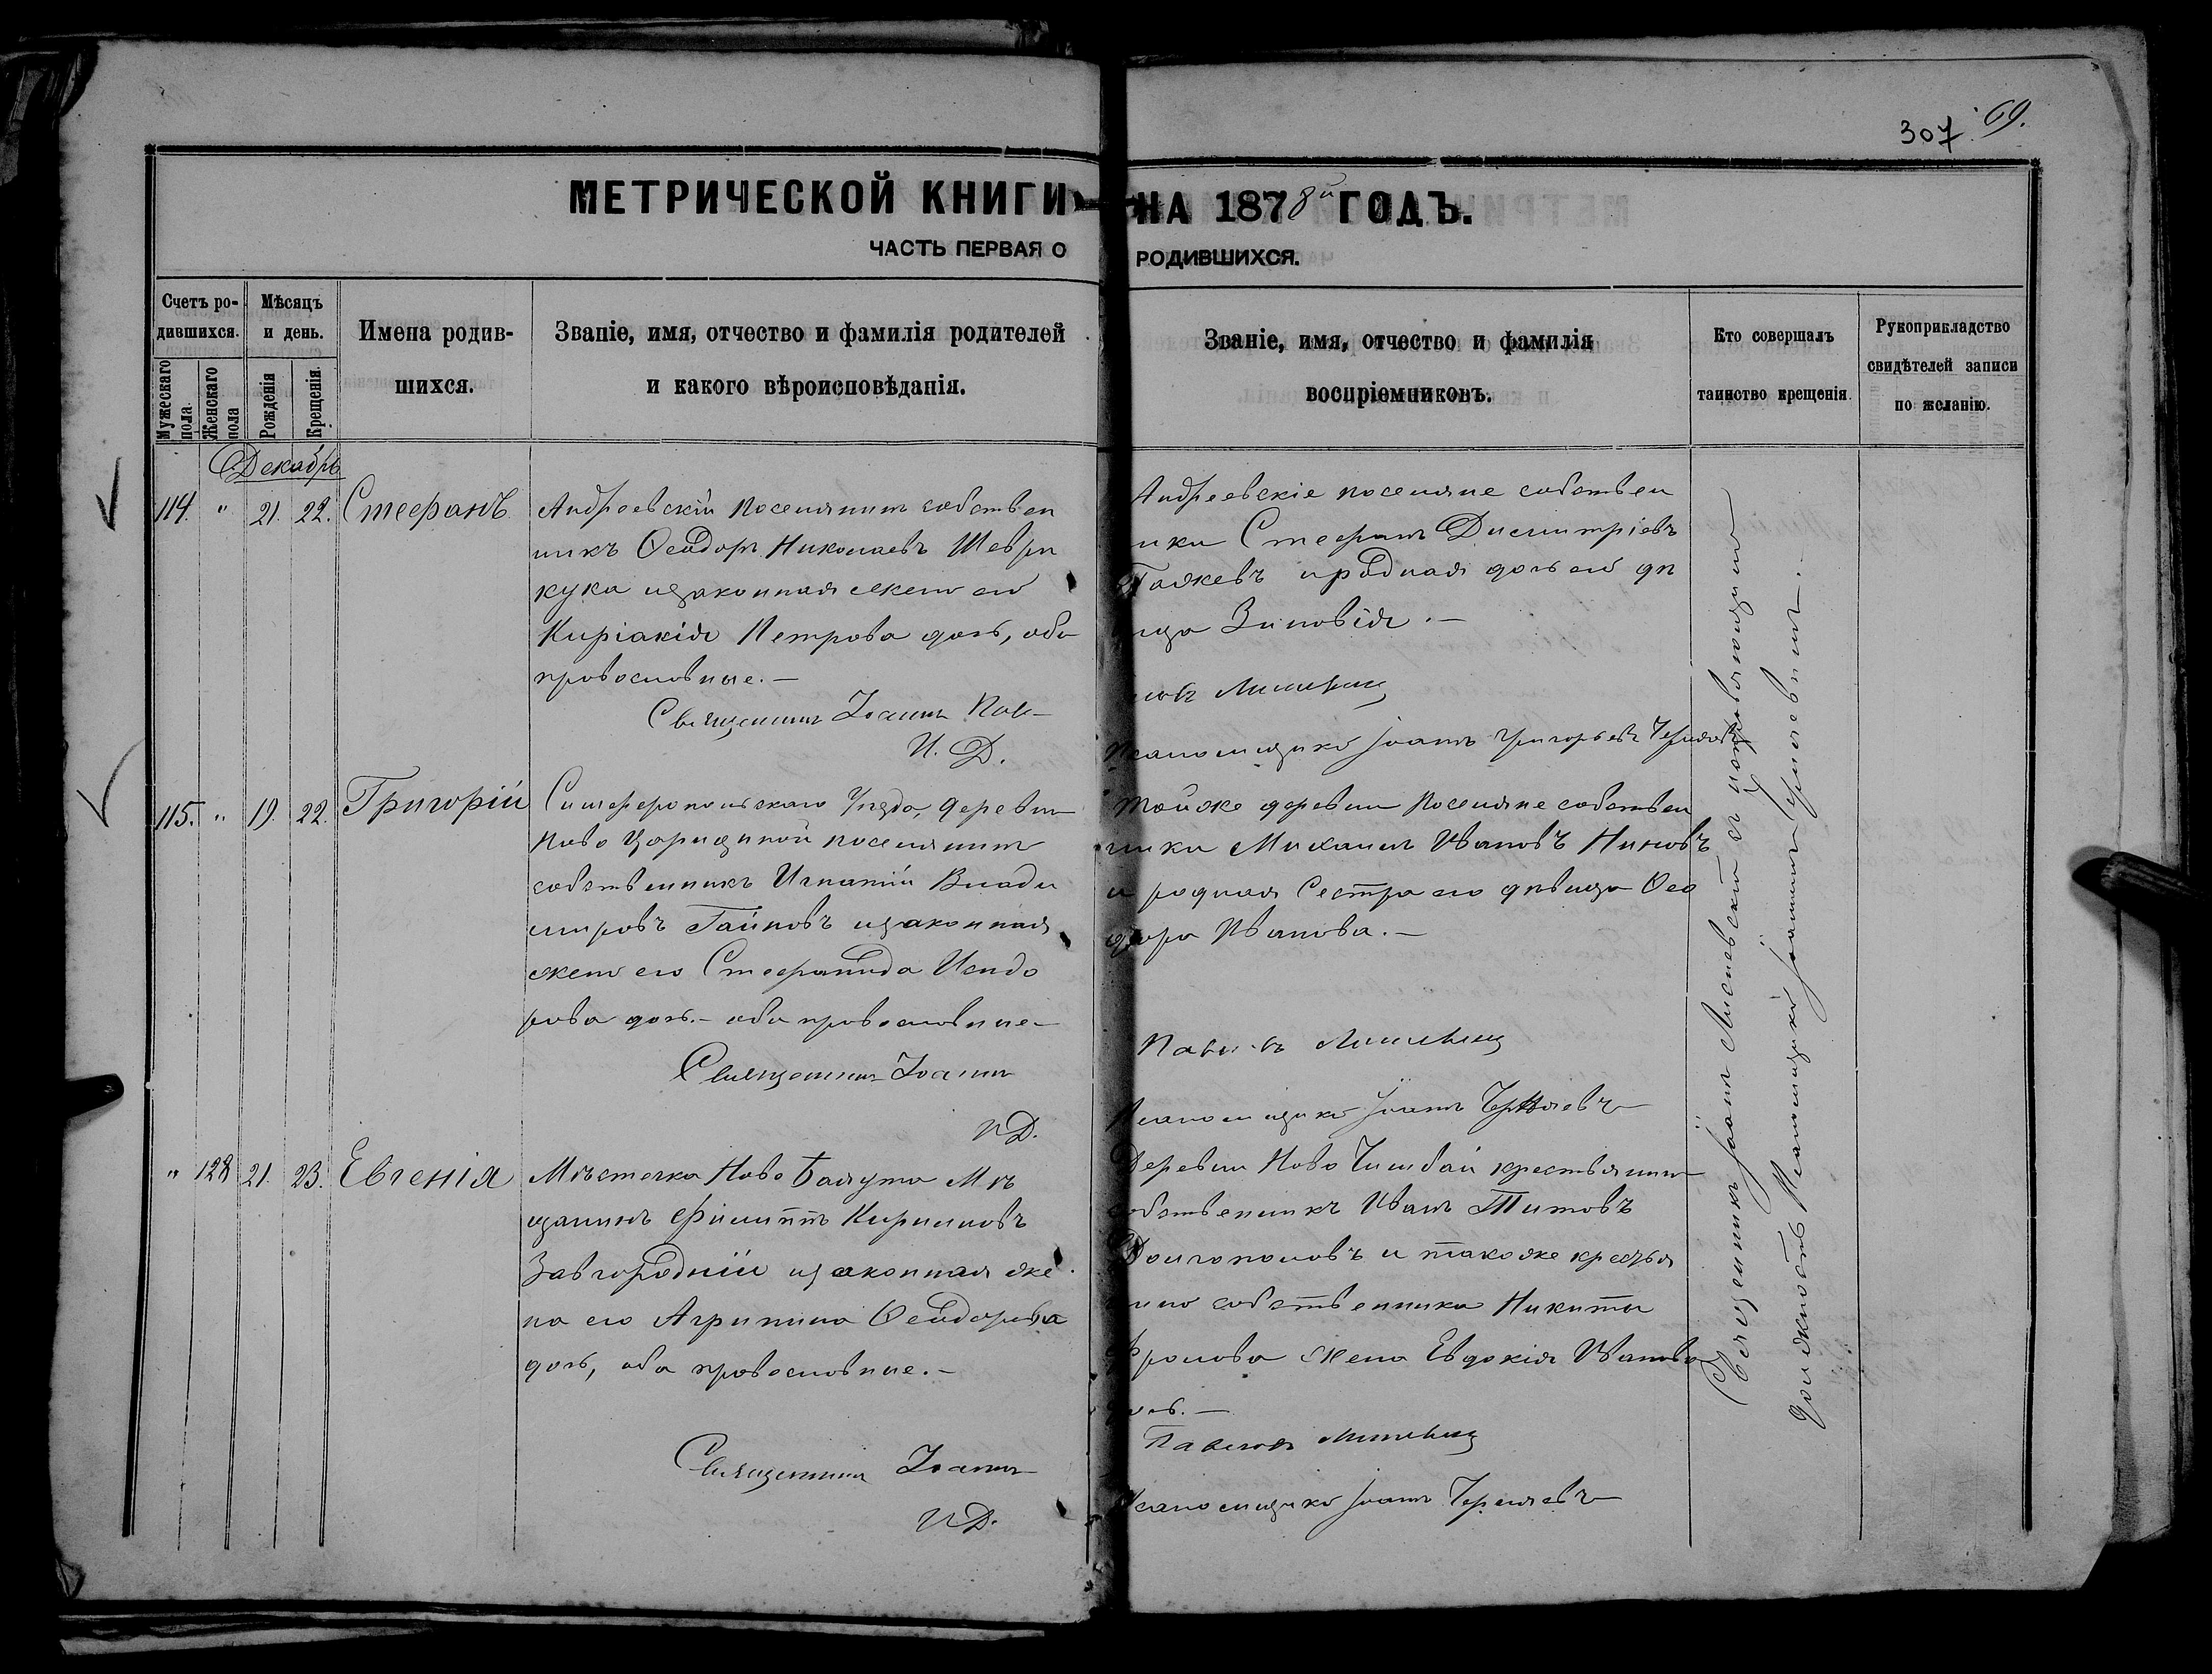 307 69.
МЕТРИЧЕСКОЙ КНИГИ НА 1878й ГОДЪ.
ЧАСТЬ ПЕРВАЯ О РОДИВШИХСЯ.
Счетъ ро-
дившихся.
Мужескаго пола.
Женскаго пола
Мѣсяцъ
и день.
Рожденія
Крещенія.
Имена родив-
шихся.
Званіе, имя, отчество и фамилія родителей
и какого вѣроисповѣданія.
Званіе, имя, отчество и фамилія
воспріемниковъ.
Кто совершалъ
таинство крещенія.
Рукоприкладство
свидѣтелей записи
по желанію.
Декабрь
114. " 21. 22. Стефанъ
Андреевскій поселянинъ собствен
никъ Ѳеодоръ Николаевъ Шеври
кука и законная жена его
Киріакія Петрова дочь, оба
православные.—
Священникъ Іоаннъ
И. Д.
Андреевскіе поселяне собствен
ники Стефанъ Димитріевъ
и родная дочь его дѣ
вица Зиновія.—
Псаломщика Іоаннъ Григорьевъ
115. " 19. 22. Григорій
Симферопольскаго уѣзда, деревни
Ново Царицыной поселянинъ
собственникъ Игнатій Влади
міровъ Гайновъ и законная
жена его Стефанида Исидо
рова дочь.— оба православные—
Священникъ Іоаннъ
И.Д.
Тойже деревни поселяне собствен
ники Михаилъ Ивановъ Ниновъ
и родная сестра его дѣвица Ѳео
дора Иванова.—
Псаломщика Іоаннъ
" 128 21. 23. Евгенія
Мѣстечка Ново Мѣ
щанинъ Филиппъ Кирилловъ
Завгородній и законная же
на его Агрипина Ѳеодорова
дочь, оба православные.—
Священникъ Іоаннъ
И.Д.
Деревни Ново крестьянинъ
собственникъ Иванъ Титовъ
Долгополовъ и такоже крестья
нина собственника Никиты
Фролова жена Евдокія Иванова
дочь.—
Псаломщика Іоаннъ
Священникъ Іоаннъ съ исправляющимъ
должность Псаломщика Іоанномъ